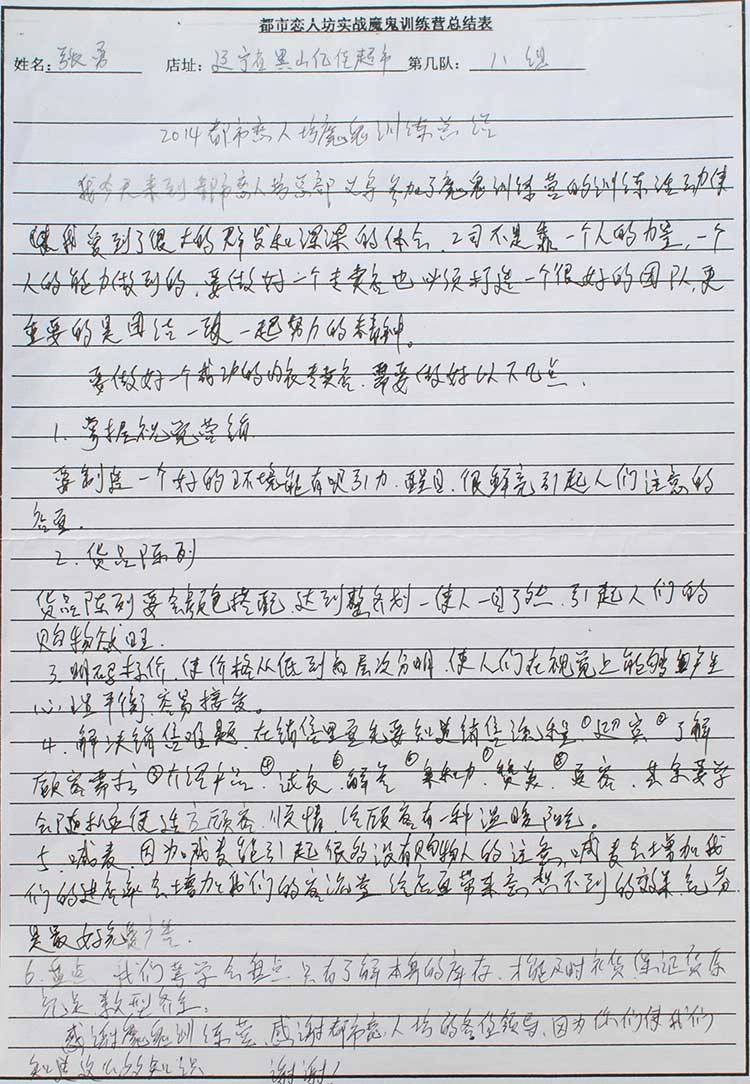 都市恋人坊实战魔鬼训练营总结表
姓名：张勇 店址：辽宁省黑山亿佳超市 第几队：八组
2014都市恋人坊魔鬼训练总结
我今天来到都市恋人坊总部 参加了魔鬼训练营的训练活动使
我受到了很大的启发和深深的体会，公司不是靠一个人的力量，一个
人的能力做到的，要做好一个专卖店也必须打造一个很好的团队，更
重要的是团结一致一起努力的精神。
要做好一个成功的内衣专卖店，需要做好以下几点，
1、掌握视觉营销
要制造一个好的环境能有吸引力，醒目，很鲜亮引起人们注意的
店面.
2、货品陈列
货品陈列要会颜色搭配，达到整齐划一使人一目了然，引起人们的
购物欲旺.
3、明码标价，使价格从低到高层次分明，使人们在视觉上能够产生
心理平衡，容易接受。
4、解决销售难题，在销售里首先要知道销售流程①迎宾②了解
顾客需求③介绍产品④试衣⑤解答⑥ ⑦赞美⑧ ，其实要学
会随机应变 顾客 ，给顾客有一种温暖 。
5、喊麦，因为喊麦能引起很的没有购物人的注意，喊麦会增加我
们的进店率会增加我们的客流量 给店面带来意想不到的效果，
是最好免费广告.
6、盘点 我们要学会盘点，只有了解本身的库存，才能及时补货，保证货
款型齐全。
感谢魔鬼训练营，感谢都市恋人坊的各位领导，因为你们使我们
知道这么多的知识 谢谢！